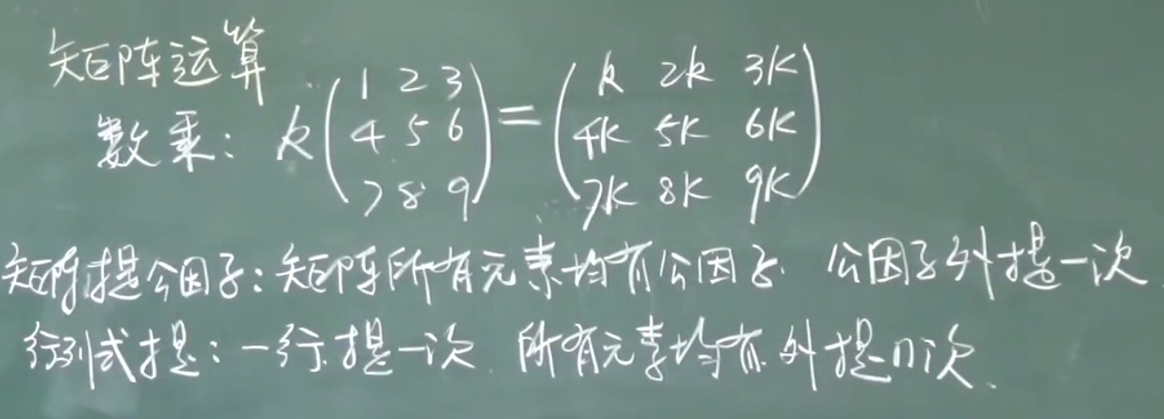 矩阵运算
数乘: k(1 2 3
4 5 6
7 8 9) = (k 2k 3k
4k 5k 6k
7k 8k 9k)
矩阵提公因子:矩阵所有元素均有公因子. 公因子外提一次.
行列式提:一行提一次. 所有元素均有外提n次.